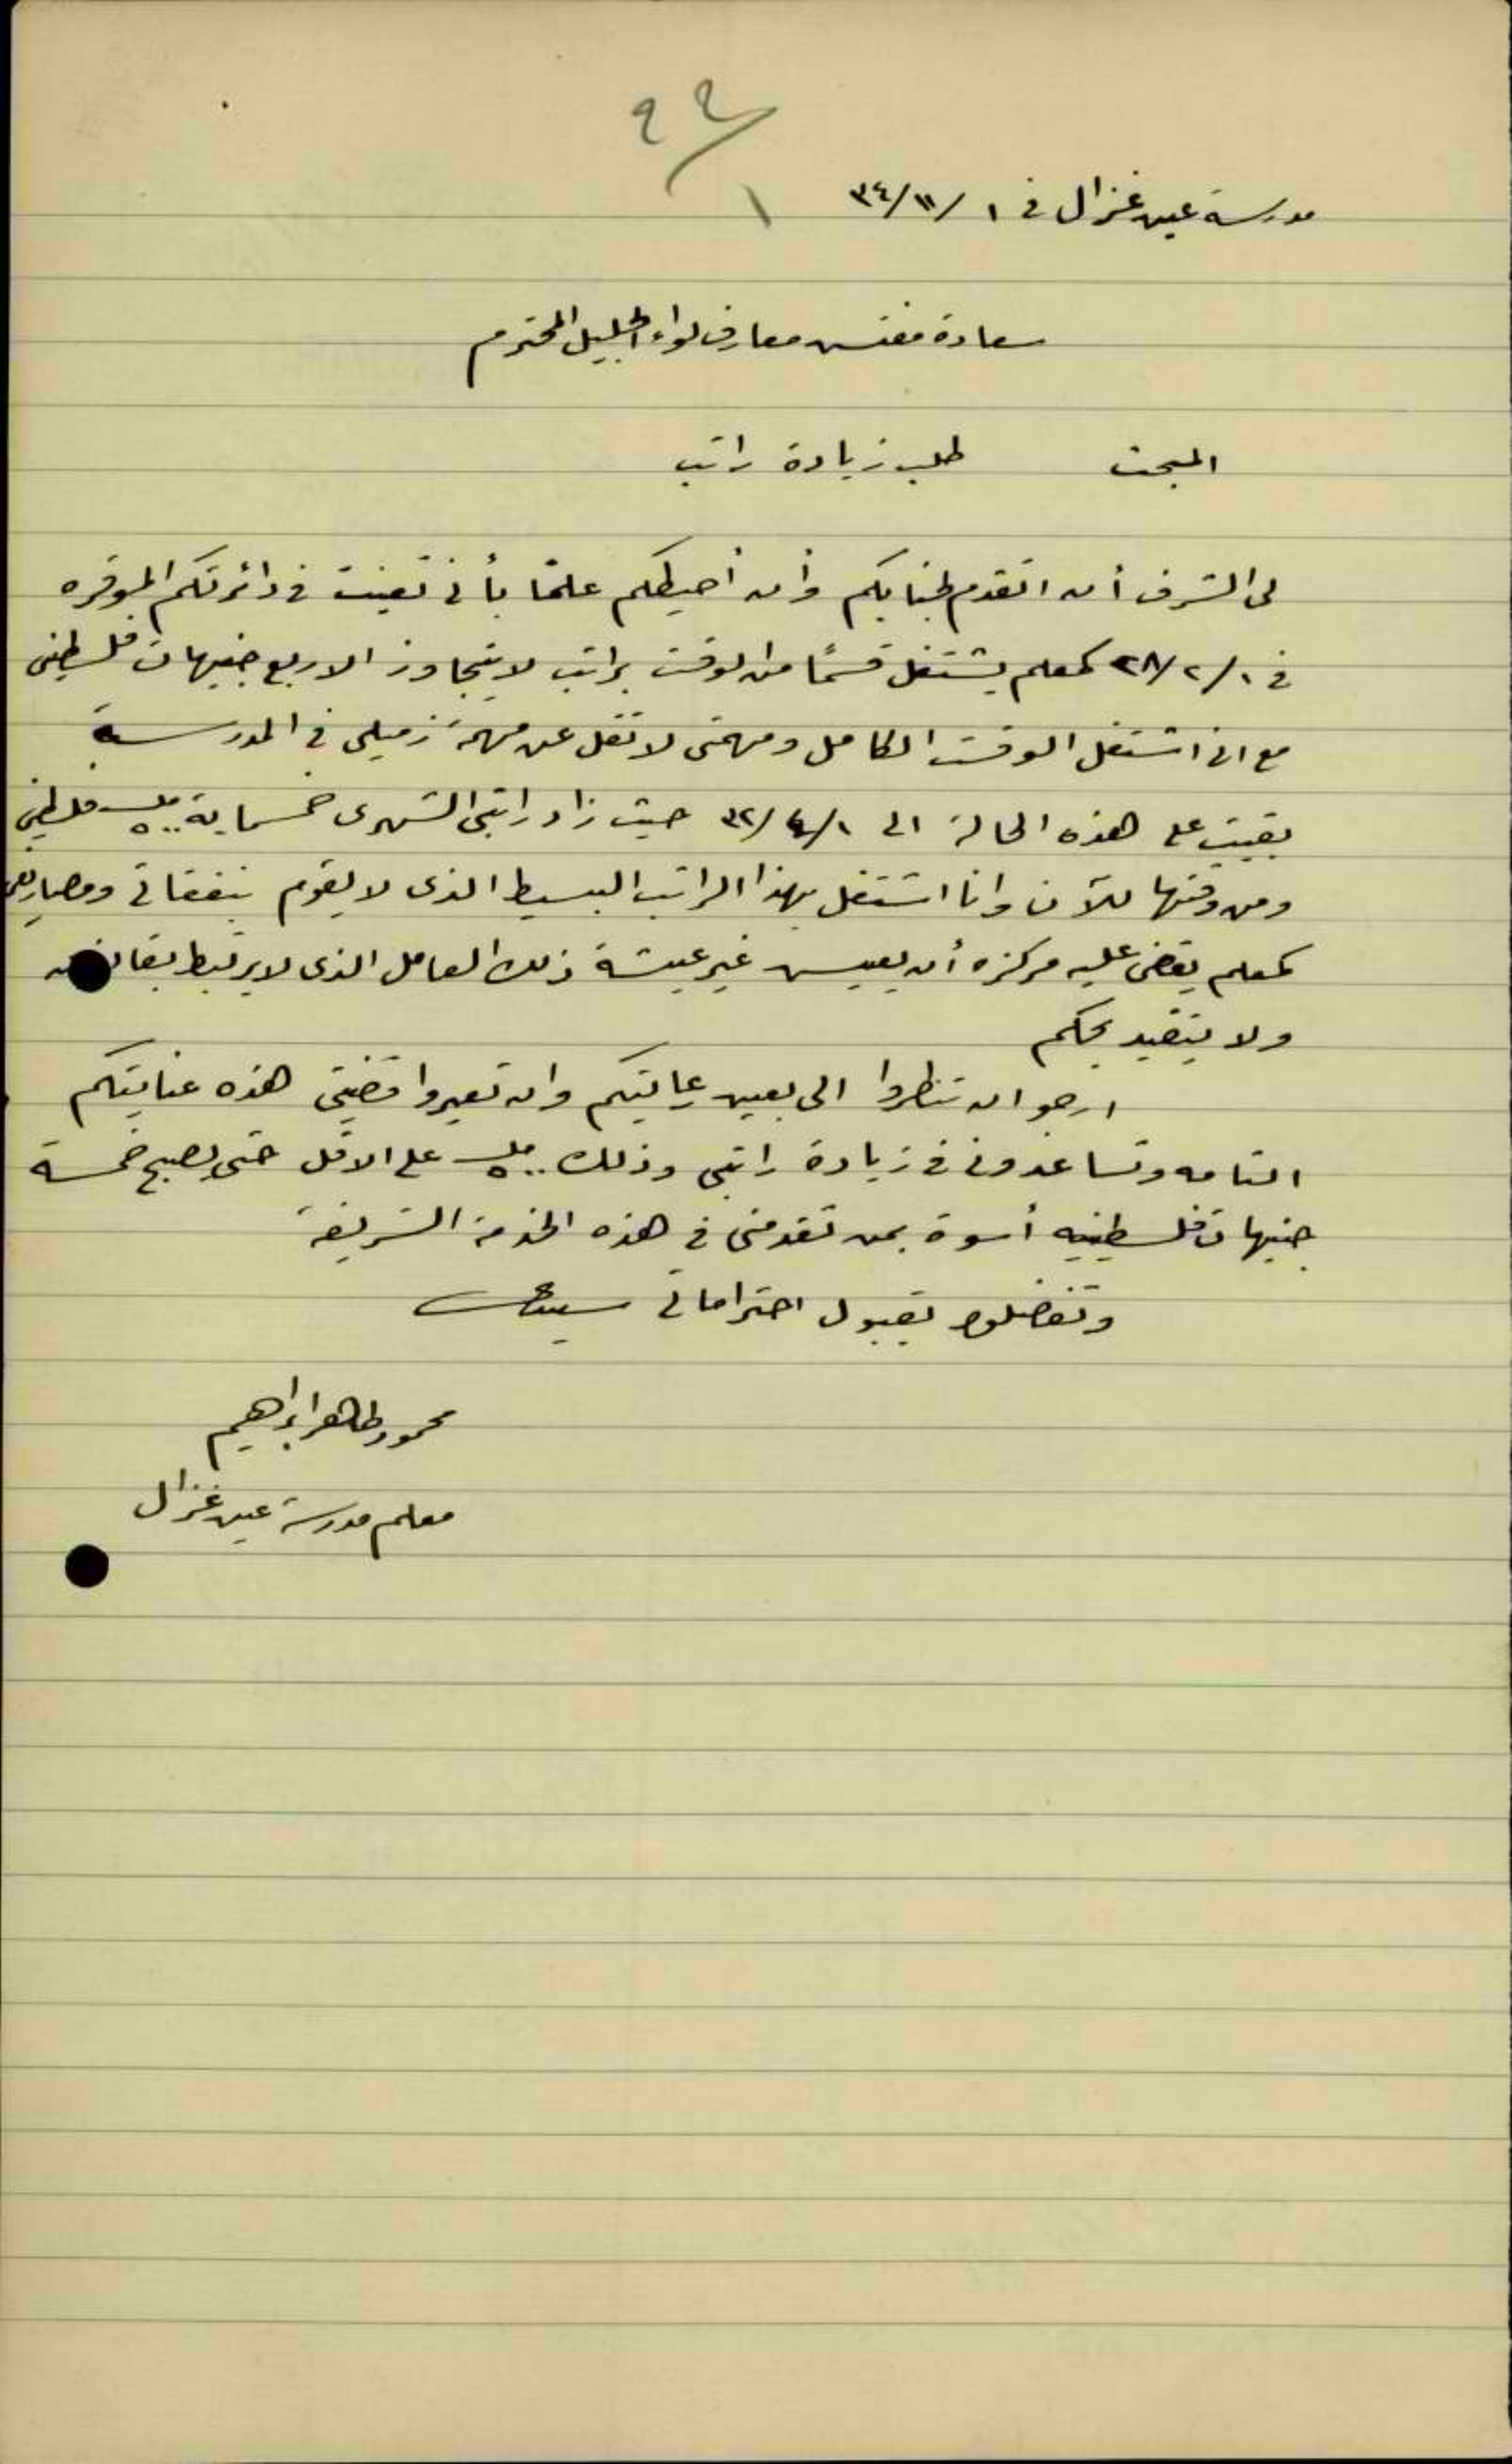 ٩٩/١
مدرسة عين غزال في ١/١١/٣٤
سعادة مفتش معارف لواء الجليل المحترم
المبحث طلب زيادة راتب
لي الشرف أن اتقدم لجنابكم وأن أحيطكم علمًا بأني تعينت في دائرتكم الموقره
في ١/٢/٢٨ كمعلم يشتغل قسمًا من الوقت براتب لا يتجاوز الاربع جنيهات فلسطيني
مع اني اشتغل الوقت الكامل ومهمتي لا تقل عن مهمة زميلي في المدرسة
بقيت على هذه الحالة الى ١/٤/٣٢ حيث زاد راتبي الشهري خمسماية ٥٠٠ مل فلسطيني
ومن وقتها للآن وانا اشتغل بهذا الراتب البسيط الذي لا يقوم بنفقاتي ومصاريفي
كمعلم يقضي عليه مركزه أن يعيش غير عيشة ذلك العامل الذي لا يرتبط بقانون
ولا يتقيد بحكم
ارجو ان تنظروا الي بعين رعايتكم وان تعيروا قضيتي هذه عنايتكم
التامه وتساعدوني في زيادة راتبي وذلك ٥٠٠ مل على الاقل حتى يصبح خمسة
جنيهات فلسطينيه أسوة بمن تقدمني في هذه الخدمة الشريفة
وتفضلوا بقبول احتراماتي سيدي
محمود طاهر ابراهيم
معلم مدرسة عين غزال